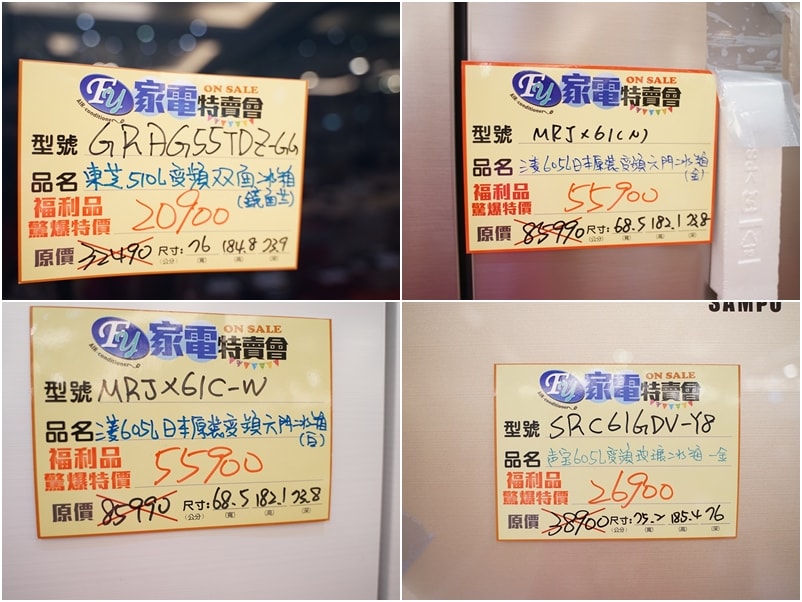 Fy 家電特賣會 ON SALE
AIR-conditioner
型號 GRAG55TDZ-GG
品名 東芝510L變頻双面冰箱
(鏡面)
福利品
驚爆特價 20900
原價 32490 尺寸: 76 184.8 73.9
(公分) (寬) (高) (深)
Fy 家電特賣會 ON SALE
AIR-conditioner
型號 MRJX61C(N)
品名 三菱605L日本原裝變頻六門冰箱
(金)
福利品
驚爆特價 55900
原價 85990 尺寸: 68.5 182.1 73.8
(公分) (寬) (高) (深)
Fy 家電特賣會 ON SALE
AIR-conditioner
型號 MRJX61C-W
品名 三菱605L日本原裝變頻六門冰箱
(白)
福利品
驚爆特價 55900
原價 85990 尺寸: 68.5 182.1 73.8
(公分) (寬) (高) (深)
SAMPO
Fy 家電特賣會 ON SALE
AIR-conditioner
型號 SRC61GDV-Y8
品名 声宝605L變頻玻璃冰箱-金
福利品
驚爆特價 26900
原價 38900 尺寸: 75.2 185.4 76
(公分) (寬) (高) (深)